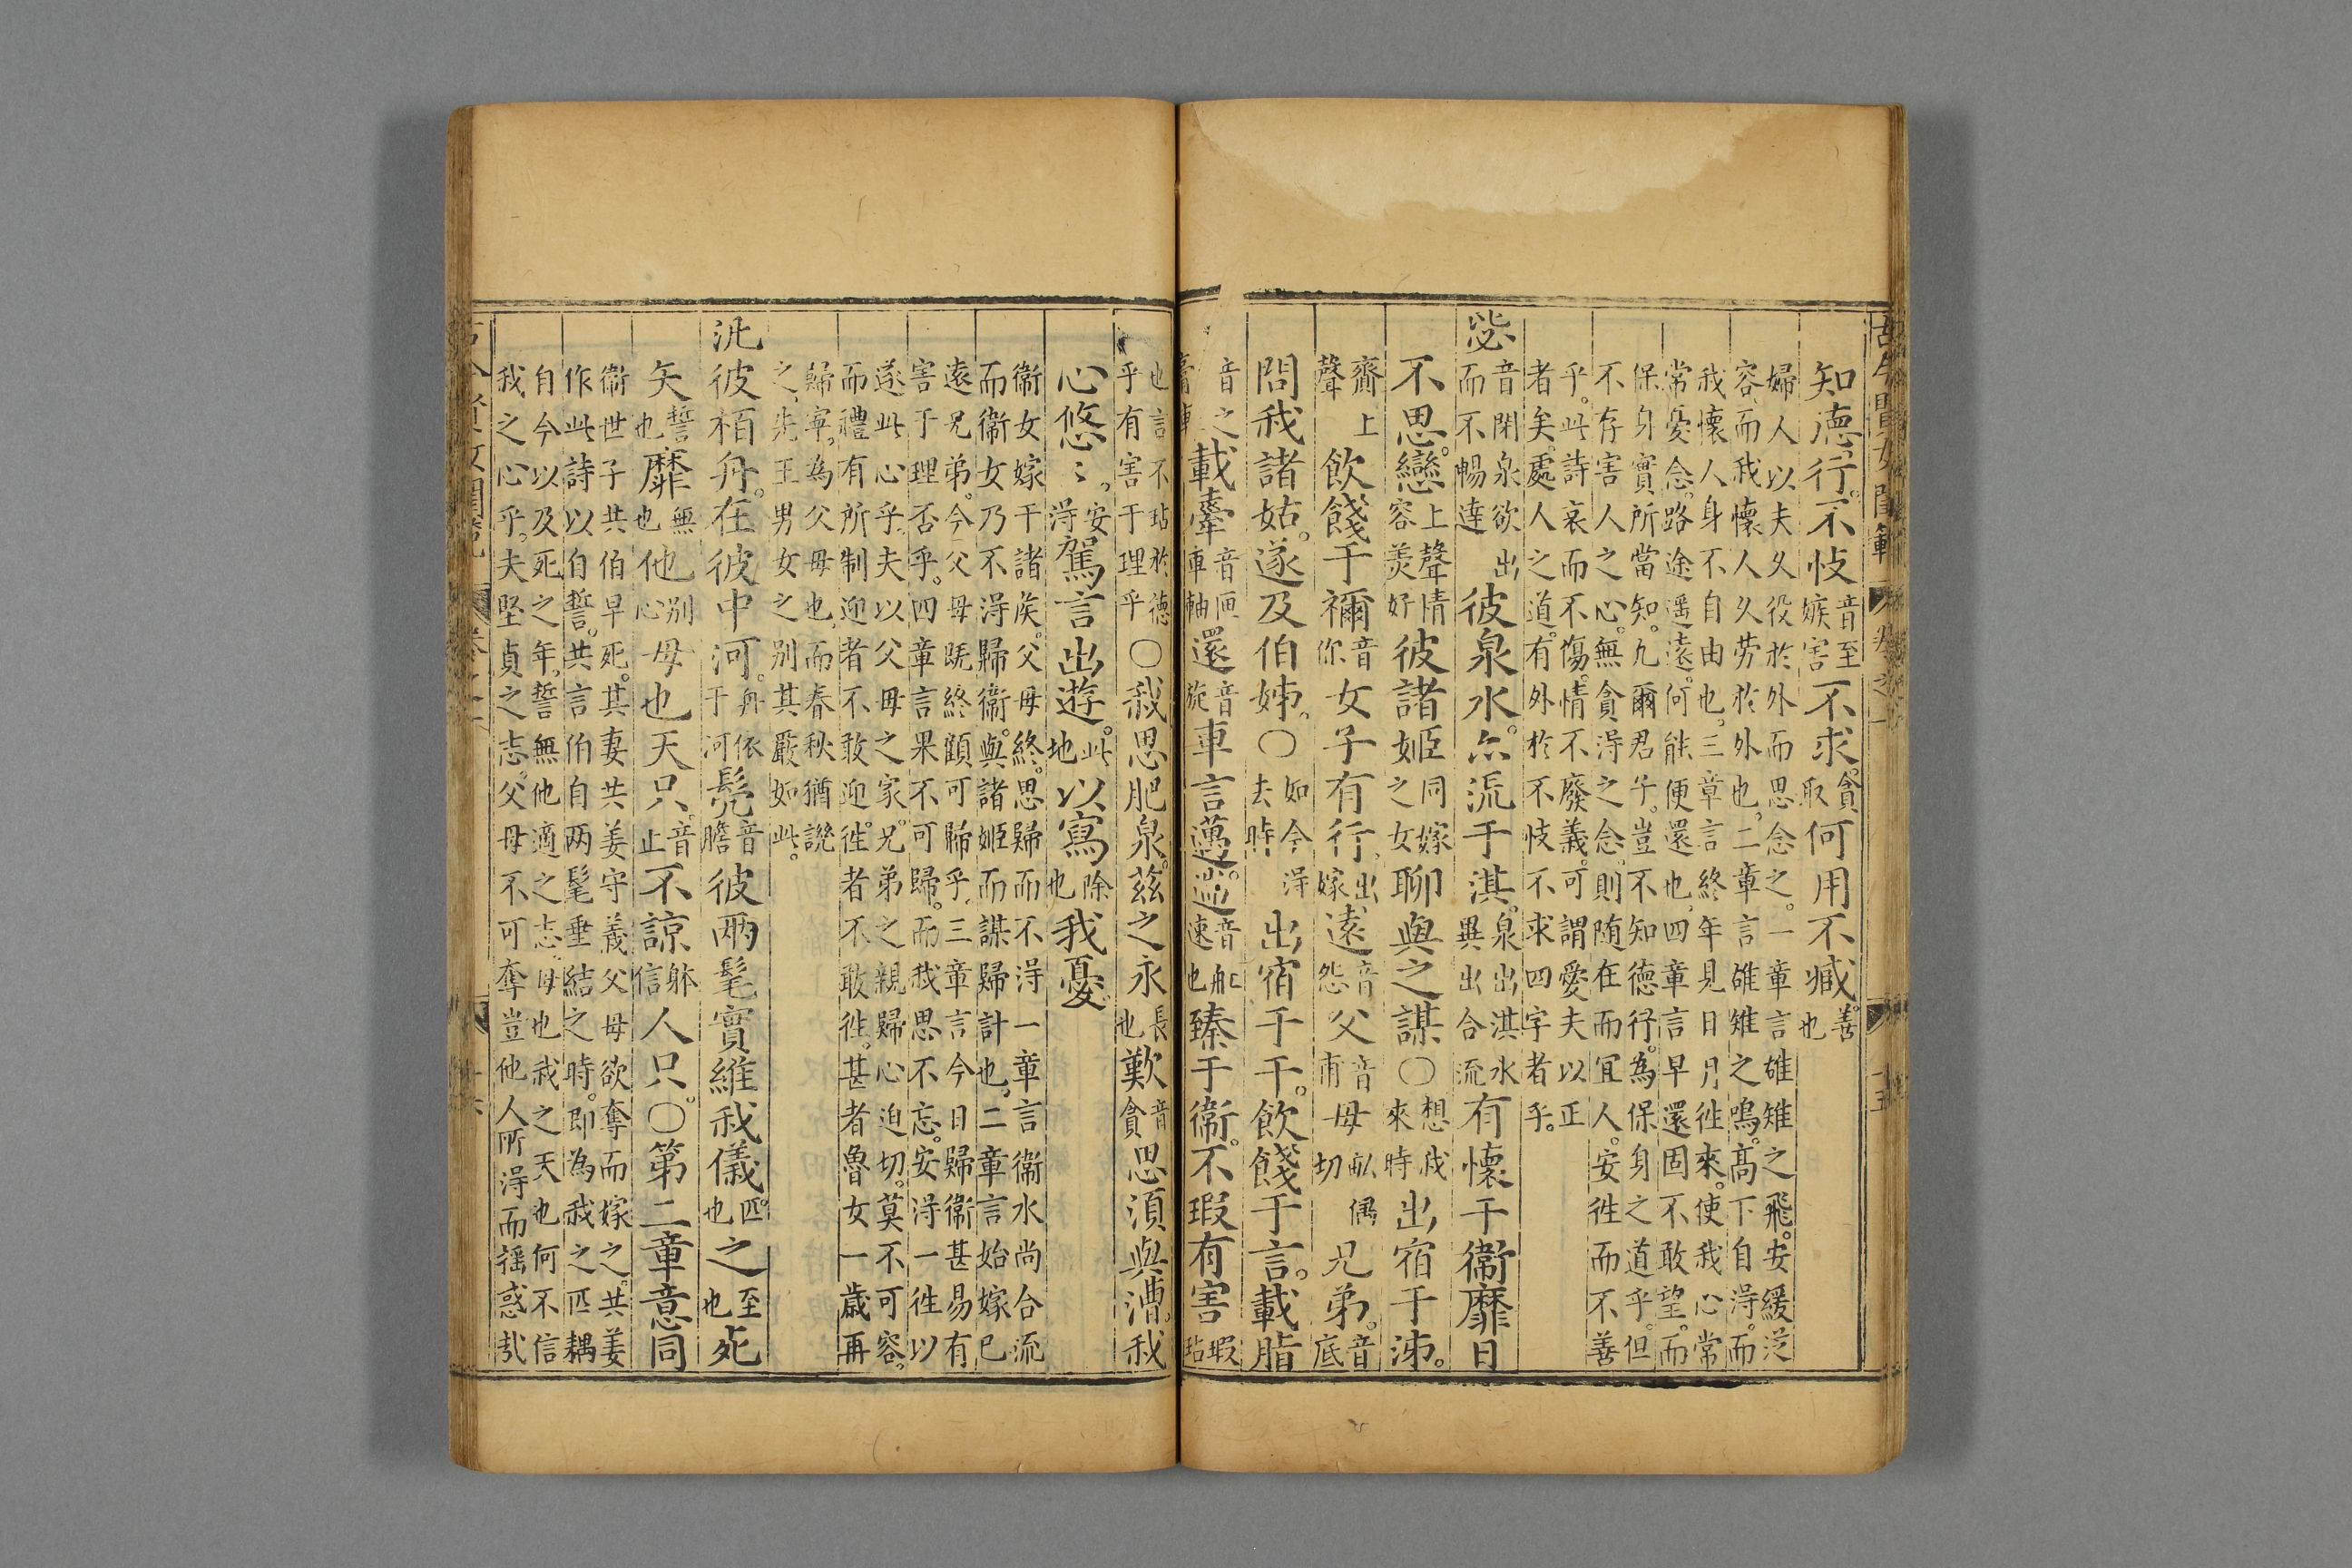 古今賢女閨範 卷之一 十五
知德行。不忮音至嫉害不求。貪取何用不臧。善也
婦人以夫久役於外而思念之。一章言雄雉之飛。安緩泛
容。而我懷人久勞於外也。二章言雄雉之鳴。高下自得。而
我懷人身不自由也。三章言終年見日月徃來。使我心常
常憂念。路途遥遠。何能便還也。四章言早還固不敢望。而
保身實所當知。凡爾君子。豈不知德行。為保身之道乎。但
不存害人之心。無貪得之念。則随在而宜人。安徃而不善
乎。此詩哀而不傷。情不廢義。可謂愛夫以正
者矣。處人之道。有外於不忮不求四字者乎。
毖音閟泉欲出而不暢達彼泉水。亦流于淇。泉出淇水異出合流有懷于衛靡日
不思。孌上聲情容美好彼諸姬同嫁之女聊與之謀〇想我來時出宿于泲。
齊上聲飲餞于禰音你女子有行。出嫁遠音怨父音甫母畝偶切兄弟。音底
問我諸姑。遂及伯姊。〇如今得去時出宿于干。飲餞于言。載脂
音之載舝音匣車軸還音旋車言邁。遄音船速也臻于衛。不瑕有害瑕玷
也言不玷於德乎有害于理乎〇我思肥泉。茲之永長也歎音貪思須與漕。我
心悠〻。安得駕言出遊。此地以寫除也我憂
衛女嫁于諸侯。父母終。思歸而不得一章言衛水尚合流
而衛女乃不得歸衛。與諸姬而謀歸計也。二章言始嫁已
遠兄弟。今父母旣終顧可歸乎。三章言今日歸衛甚易有
害于理否乎。四章言果不可歸。而我思不忘。安得一徃以
遂此心乎。夫以父母之家。兄弟之親歸心迫切。莫不可容。
而禮有所制迎者不敢迎。徃者不敢徃。甚者魯女一歲再
歸寧。為父母也。而春秋猶譏
之。先王男女之别其嚴如此。
汎彼栢舟。在彼中河。舟依于河髧音膽彼兩髦實維我儀匹也之至也死
矢誓也靡無也他别心母也天只。音止不諒體信人只。〇第二章意同
衛世子共伯早死。其妻共姜守義父母欲奪而嫁之。共姜
作此詩以自誓。共言伯自两髦垂結之時。即為我之匹耦
自今以及死之年。誓無他適之志。母也我之天也何不信
我之心乎。夫坚貞之志。父母不可奪豈他人所得而摇惑㢤